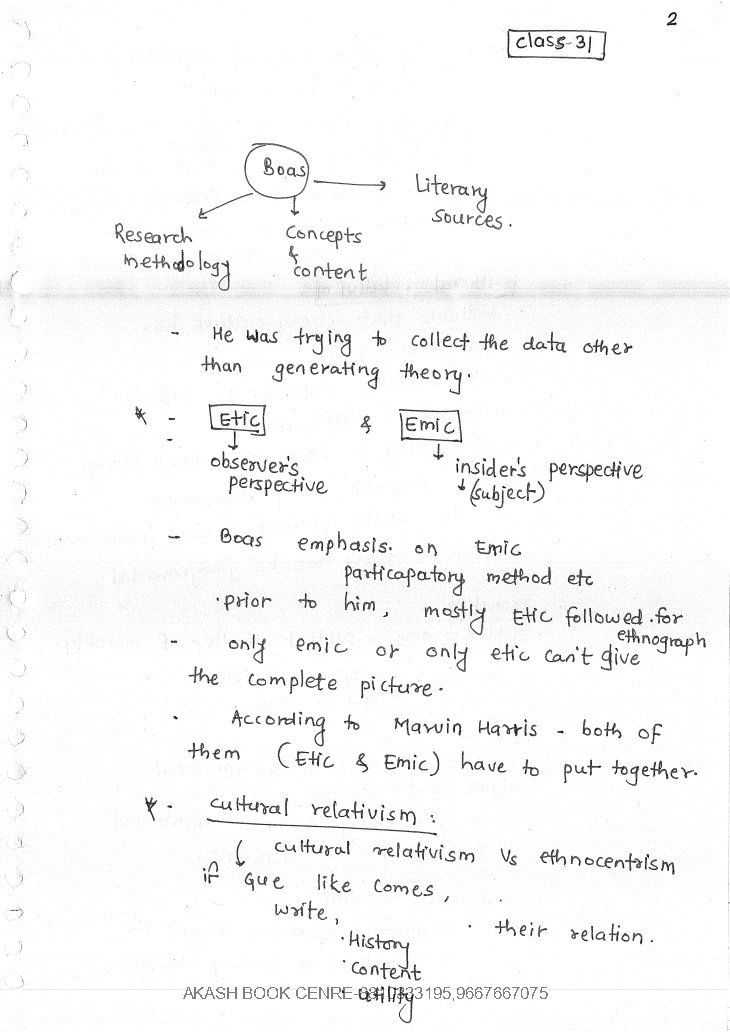 2
class-31
Boas
Literary
sources.
Research
methodology
Concepts
&
content
- He was trying to collect the data other
than generating theory.
* - Etic & Emic
-
observer's
perspective
insider's perspective
(subject)
- Boas emphasis. on Emic
particapatory method etc
. prior to him, mostly Etic followed. for
ethnograph
- only emic or only etic can't give
the complete picture.
. According to Marvin Harris - both of
them (Etic & Emic) have to put together.
* - cultural relativism :
cultural relativism Vs ethnocentrism
if Que like comes,
write,
. their relation.
. History
. Content
utility
AKASH BOOK CENRE-
333195,9667667075